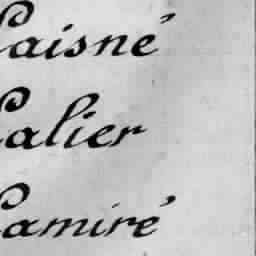 Laisné
Lalier
Lamiré